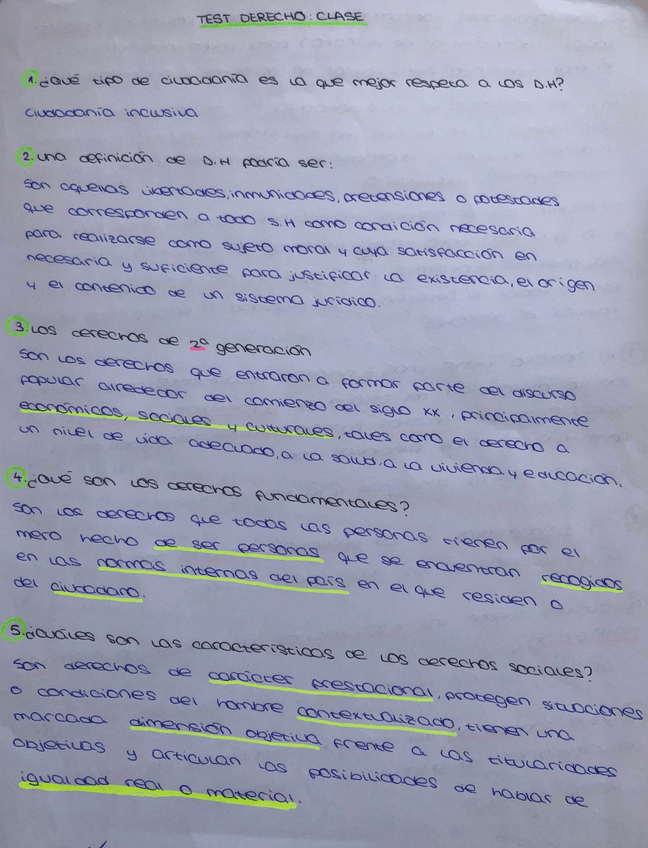 TEST DERECHO: CLASE
1. ¿Qué tipo de ciudadanía es la que mejor respeta a los D.H?
Ciudadanía inclusiva
2. Una definición de D.H podría ser:
Son aquellas libertades, inmunidades, pretensiones o potestades
que corresponden a todo S.H como condición necesaria
para realizarse como sujeto moral y cuya satisfacción en
necesaria y suficiente para justificar la existencia, el origen
y el contenido de un sistema jurídico.
3. Los derechos de 2ª generación
Son los derechos que entraron a formar parte del discurso
popular alrededor del comienzo del siglo XX, principalmente
económicos, sociales y culturales, tales como el derecho a
un nivel de vida adecuado, a la salud, a la vivienda y educación.
4. ¿Qué son los derechos fundamentales?
Son los derechos que todas las personas tienen por el
mero hecho de ser personas que se encuentran recogidos
en las normas internas del país en el que residen o
del ciudadano.
5. ¿Cuáles son las características de los derechos sociales?
Son derechos de carácter prestacional, protegen situaciones
o condiciones del hombre contextualizado, tienen una
marcada dimensión objetiva frente a las titularidades
objetivas y articulan las posibilidades de hablar de
igualdad real o material.